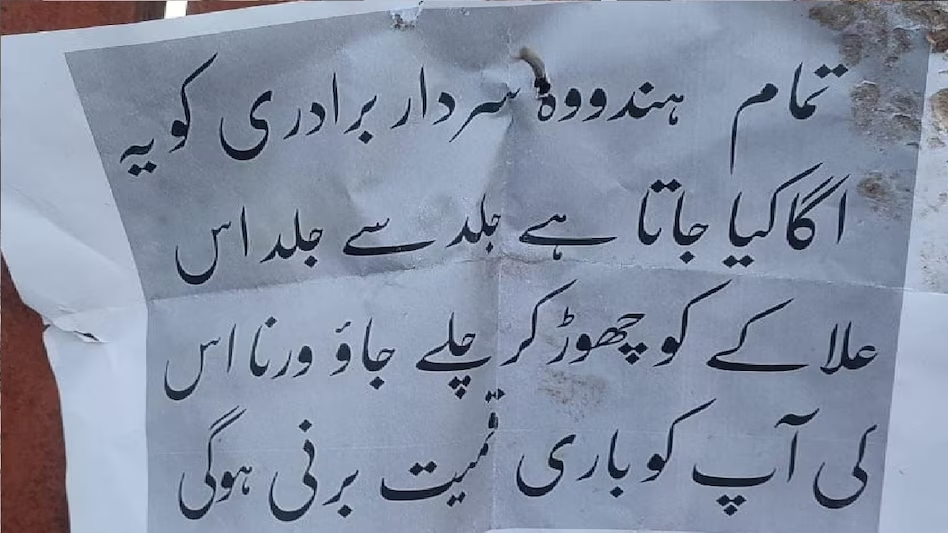 تمام ہندووہ سردار برادری کو یہ
اگا کیا جاتا ہے جلد سے جلد اس
علاکے کو چھوڑ کر چلے جاؤ ورنا اس
کی آپ کو باری قمیت برنی ہوگی